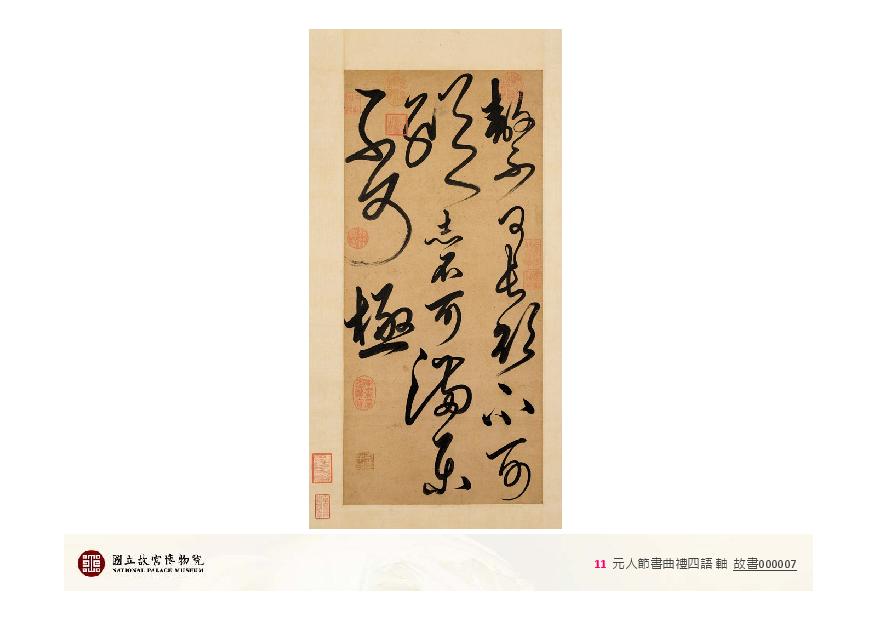 敖不可長欲不可
縱志不可滿樂
不可極
國立故宮博物院
NATIONAL PALACE MUSEUM
11 元人節書曲禮四語 軸 故書000007